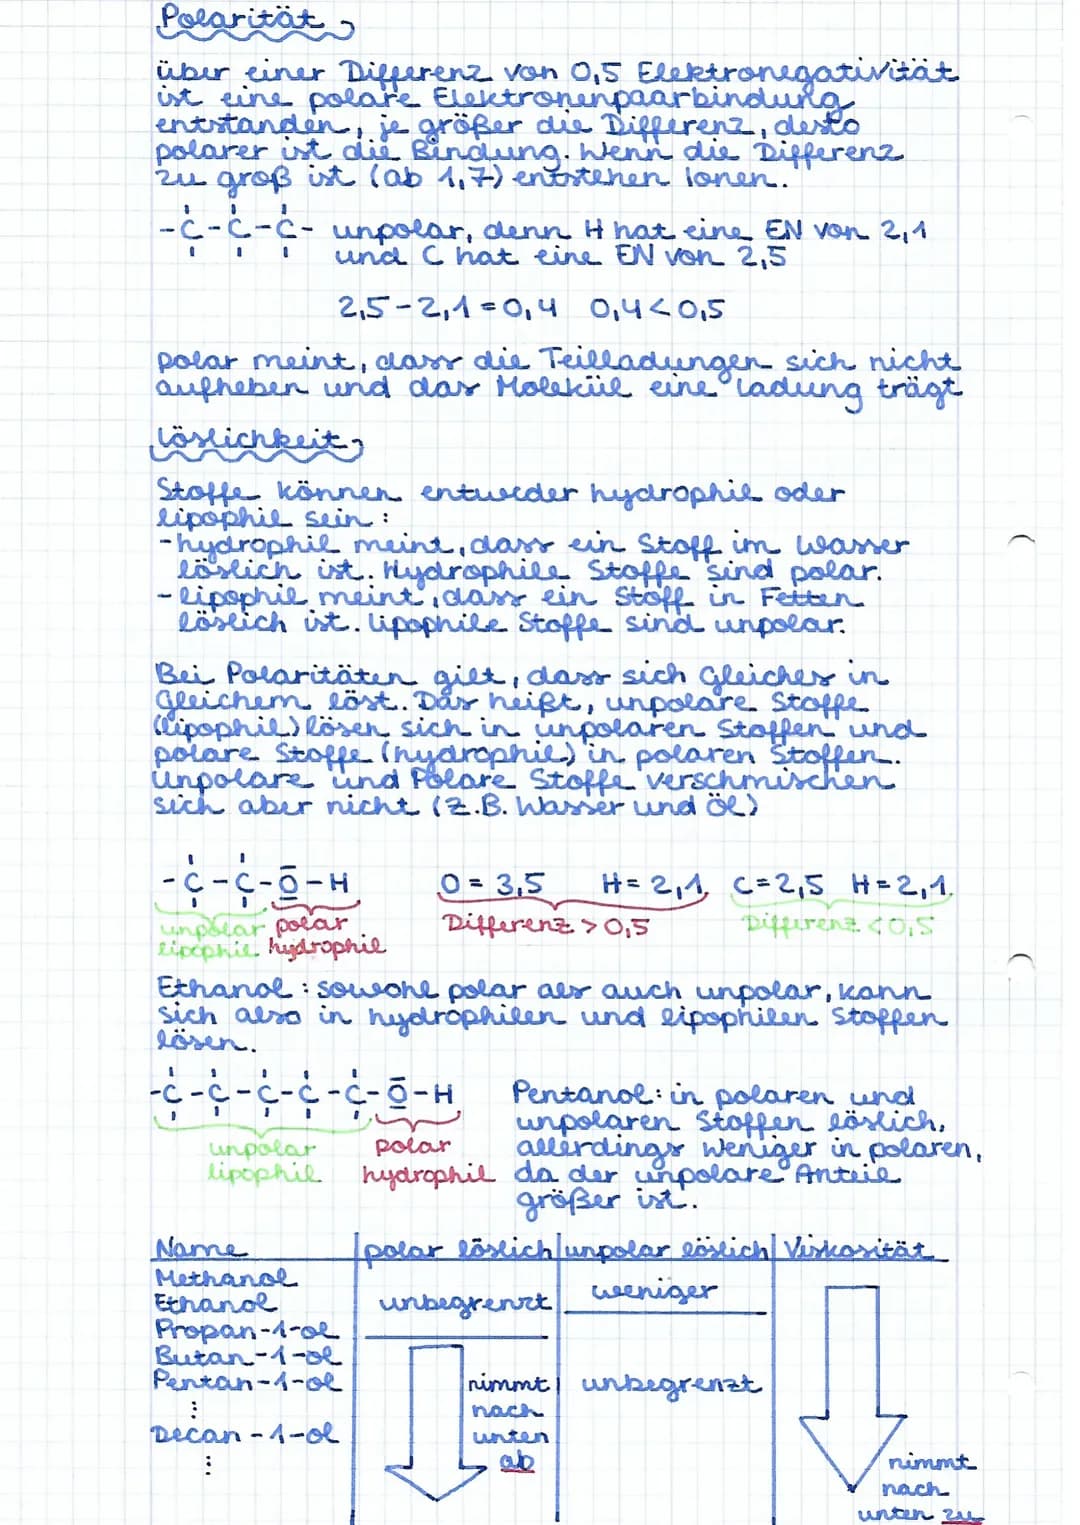 Polarität
über einer Differenz von 0,5 Elektronegativität
ist eine polare Elektronenpaarbindung
entstanden, je größer die Differenz, desto
polarer ist die Bindung. Wenn die Differenz
zu groß ist (ab 1,7) entstehen Ionen.
-C-C-C- unpolar, denn H hat eine EN von 2,1
und C hat eine EN von 2,5
2,5-2,1=0,4 0,4<0,5
polar meint, dass die Teilladungen sich nicht
aufheben und das Molekül eine Ladung trägt
Löslichkeit
Stoffe können entweder hydrophil oder
lipophil sein:
-hydrophil meint, dass ein Stoff im Wasser
löslich ist. Hydrophile Stoffe sind polar.
-lipophil meint, dass ein Stoff in Fetten
löslich ist. Lipophile Stoffe sind unpolar.
Bei Polaritäten gilt, dass sich Gleiches in
Gleichem löst. Das heißt, unpolare Stoffe
(lipophil) lösen sich in unpolaren Stoffen und
polare Stoffe (hydrophil) in polaren Stoffen.
Unpolare und Polare Stoffe verschmischen
sich aber nicht (z.B. Wasser und Öl)
-C-C-O-H O=3,5 H=2,1 C=2,5 H=2,1
unpolar polar Differenz >0,5 Differenz <0,5
lipophil hydrophil
Ethanol: sowohl polar als auch unpolar, kann
sich also in hydrophilen und lipophilen Stoffen
lösen.
-C-C-C-C-C-O-H Pentanol: in polaren und
unpolaren Stoffen löslich,
unpolar polar allerdings weniger in polaren,
lipophil hydrophil da der unpolare Anteil
größer ist.
Name polar löslich unpolar löslich Viskosität
Methanol
weniger
Ethanol unbegrenzt
Propan-1-ol
Butan-1-ol
Pentan-1-ol nimmt unbegrenzt
⋮ nach
Decan-1-ol unten
⋮ ab
nimmt
nach
unten zu